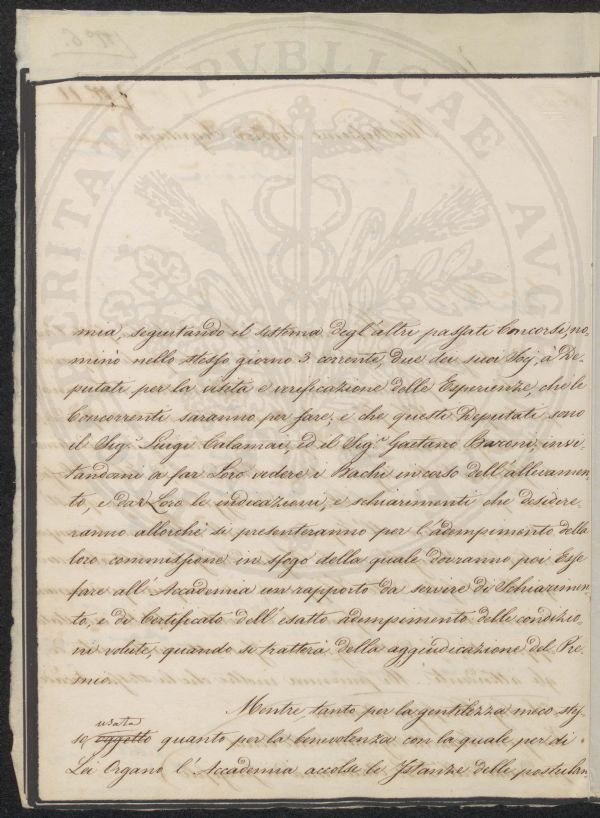 mia, seguitando il sistema degl'altri passati Concorsi, no,
minò nello stesso giorno 3 corrente, due dei suoi Soj, à De,
putati per la visita e verificazione delle Esperienze, che le
Concorrenti saranno per fare, e che questi Deputati sono
il Sigr. Luigi Calamai, ed il Sigr. Gaetano Baroni, invi,
tandomi a far Loro vedere i Bachi in corso dell'allevamen,
to, e dar Loro le indicazioni, e schiarimenti che desidere,
ranno allorchè si presenteranno per l'adempimento della
loro commissione in sfogo della quale dovranno poi Essi
fare all'Accademia un rapporto da servire di Schiarimen,
to, e di Certificato dell'esatto adempimento delle condizio,
ni volute, quando si tratterà della aggiudicazione del Pre,
mio.
Mentre, tanto per la gentilezza meco stes,
usata
se, oggetto quanto per la benevolenza con la quale per di
Lei Organo l'Accademia accolse le Istanze delle postulan,